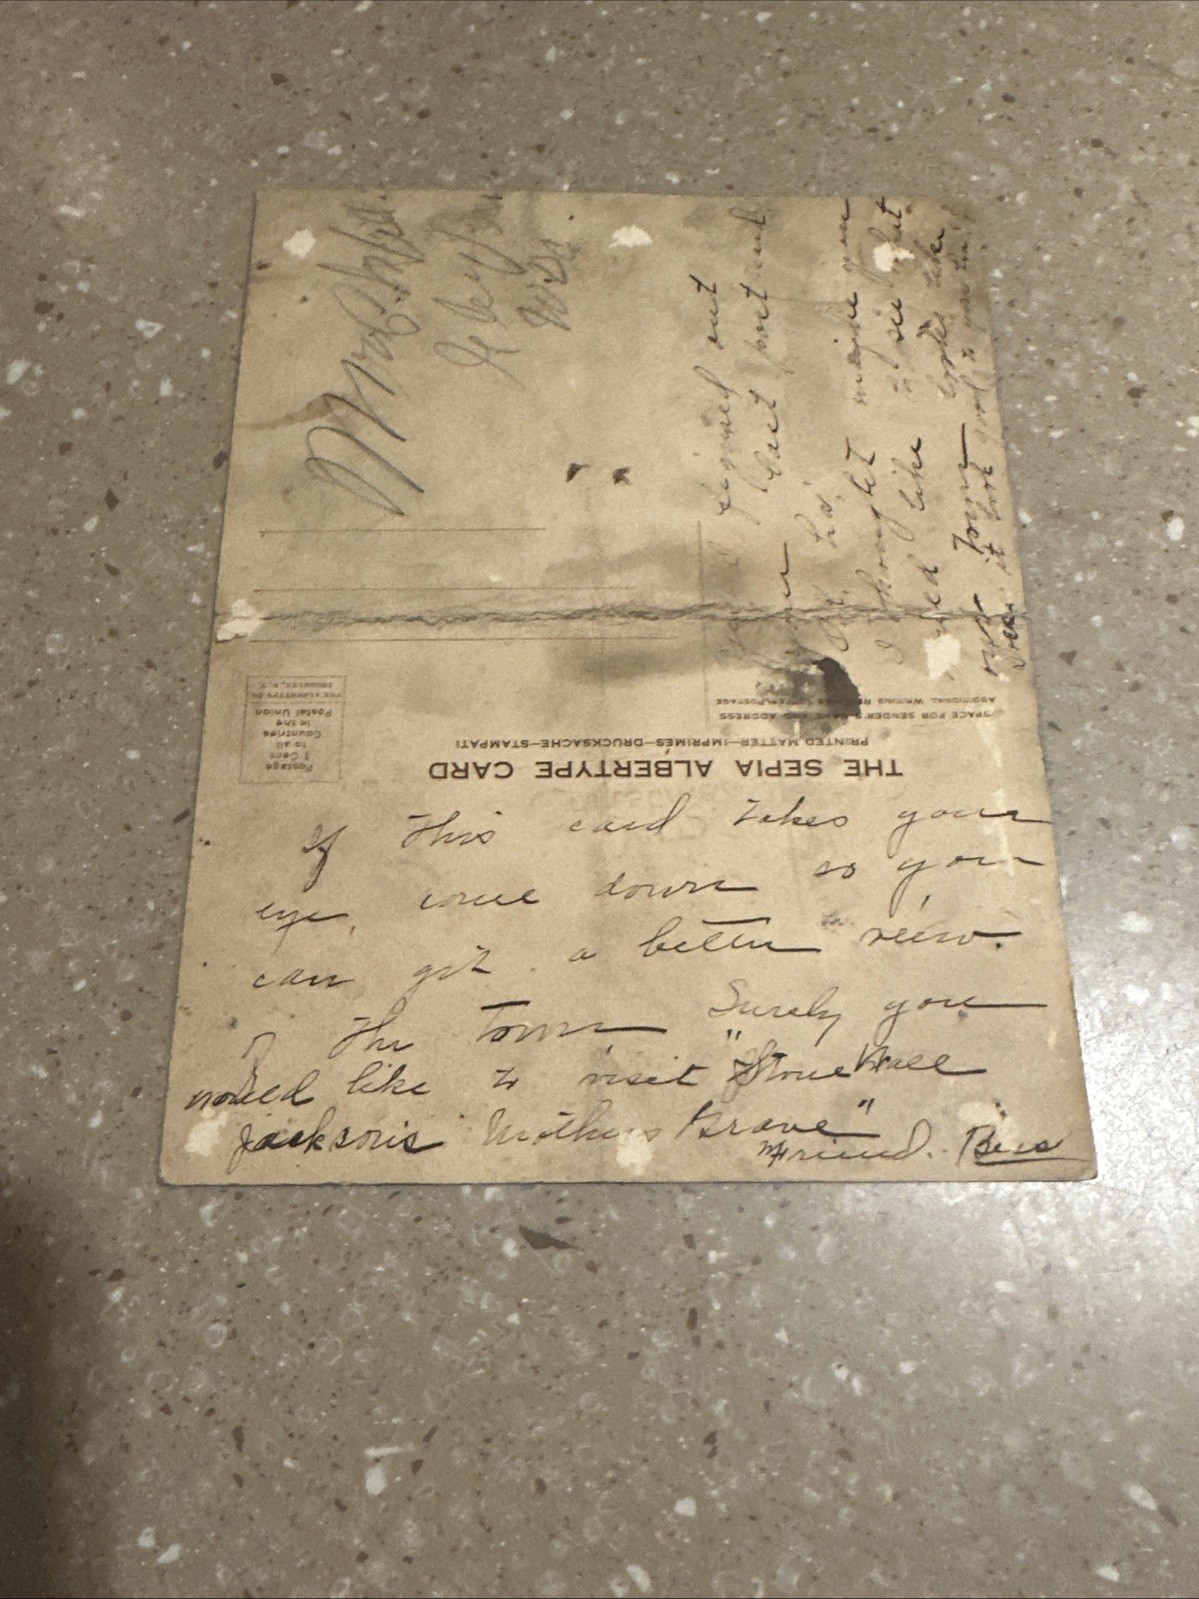 THE SEPIA ALBERTYPE CARD
PRINTED MATTER—IMPRIMÉS—DRUCKSACHE—STAMPATI
SPACE FOR SENDER'S NAME AND ADDRESS
ADDITIONAL WRITING LETTER POSTAGE
Postage
1 Cent
to all
Countries
in the
Postal Union
THE ALBERTYPE CO.
BROOKLYN, N.Y.
Mrs.
W.Va
out
last post card
I thought maybe you
would like to see what
our Town looks like
it look good to you
If this card takes your
eye, come down so you
can get a better view.
of the town. Surely you
would like to visit "Stone Wall
Jackson's Mothers Grave"
Friend. Bess